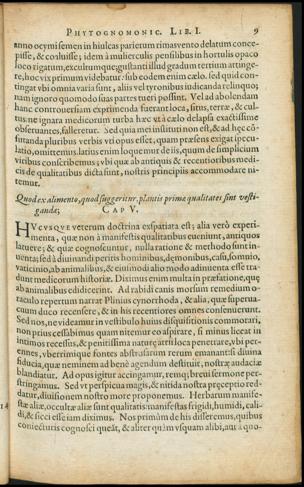 PHYTOGNOMONIC. LIB. I. 9
anno ocymi semen in hiulcas parietum rimas vento delatum conce-
pisse, & coluisse; idem à mulierculis pensilibus in hortulis opaco
loco rigatum, excultumque; gustanti illud gradum tertium attinge-
re, hoc vix primum videbatur: sub eodem enim cælo. sed quid con-
tingat vbi omnia varia sunt, alijs vel tyronibus iudicanda relinquo;
nam ignoro quomodo suas partes tueri possint. Vel ad abolendam
hanc controuersiam exprimenda fuerant loca, situs, terræ, & cul-
tus: ne ignara medicorum turba hæc vt à cælo delapsa exactissime
obseruantes, falleretur. Sed quia mei instituti non est, & ad hęc cō-
futanda pluribus verbis vti opus esset, quam præsens exigat specu-
latio, omittemus. latius enim loquemur de iis, quum de simplicium
viribus conscribemus; vbi quæ ab antiquis & recentioribus medi-
cis de qualitatibus dicta sunt, nostris principiis accommodare ni-
temur.
Quod ex alimento, quod suggeritur, plantis primæ qualitates sint vesti-
gandæ; CAP V.
HVcvsqve veterum doctrina exspatiata est; alia verò experi-
menta, quæ non à manifestis qualitatibus eueniunt, antiquos
latuere; & quæ cognoscuntur, nulla ratione & methodo sunt in-
uenta; sed à diuinandi peritis hominibus, dęmonibus, casu, somnio,
vaticinio, ab animalibus, & eiusmodi alio modo adinuenta esse tra-
dunt medicorum historiæ. Diximus enim multa in præfatione, quę
ab animalibus edidicerint. Ad rabidi canis morsum remedium o-
raculo repertum narrat Plinius cynorrhoda, & alia, quæ superua-
cuum duco recensere, & in his recentiores omnes consenserunt.
Sed nos, ne videamur in vestibulo huius disquisitionis commorari,
non prius cessabimus quam nitemur eo aspirare, si minus liceat in
intimos recessus, & penitissima naturę artis loca penetrare, vbi per-
ennes, vberrimique fontes abstrusarum rerum emanant: si diuina
fiducia, quæ neminem ad benè agendum destituit, nostræ audaciæ
blandiatur. Ad opus igitur accingamur, remque; breui sermone per-
stringamus. Sed vt perspicua magis, & nitida nostra pręceptio red-
datur, diuisionem nostro more proponemus. Herbarum manife-
stæ aliæ, occultæ aliæ sunt qualitates: manifestas frigidi, humidi, cali-
di, & sicci esse iam diximus. Nos primùm de his disseremus, quibus
coniecturis cognosci queāt, & aliter quàm vsquam alibi, aut à quo-